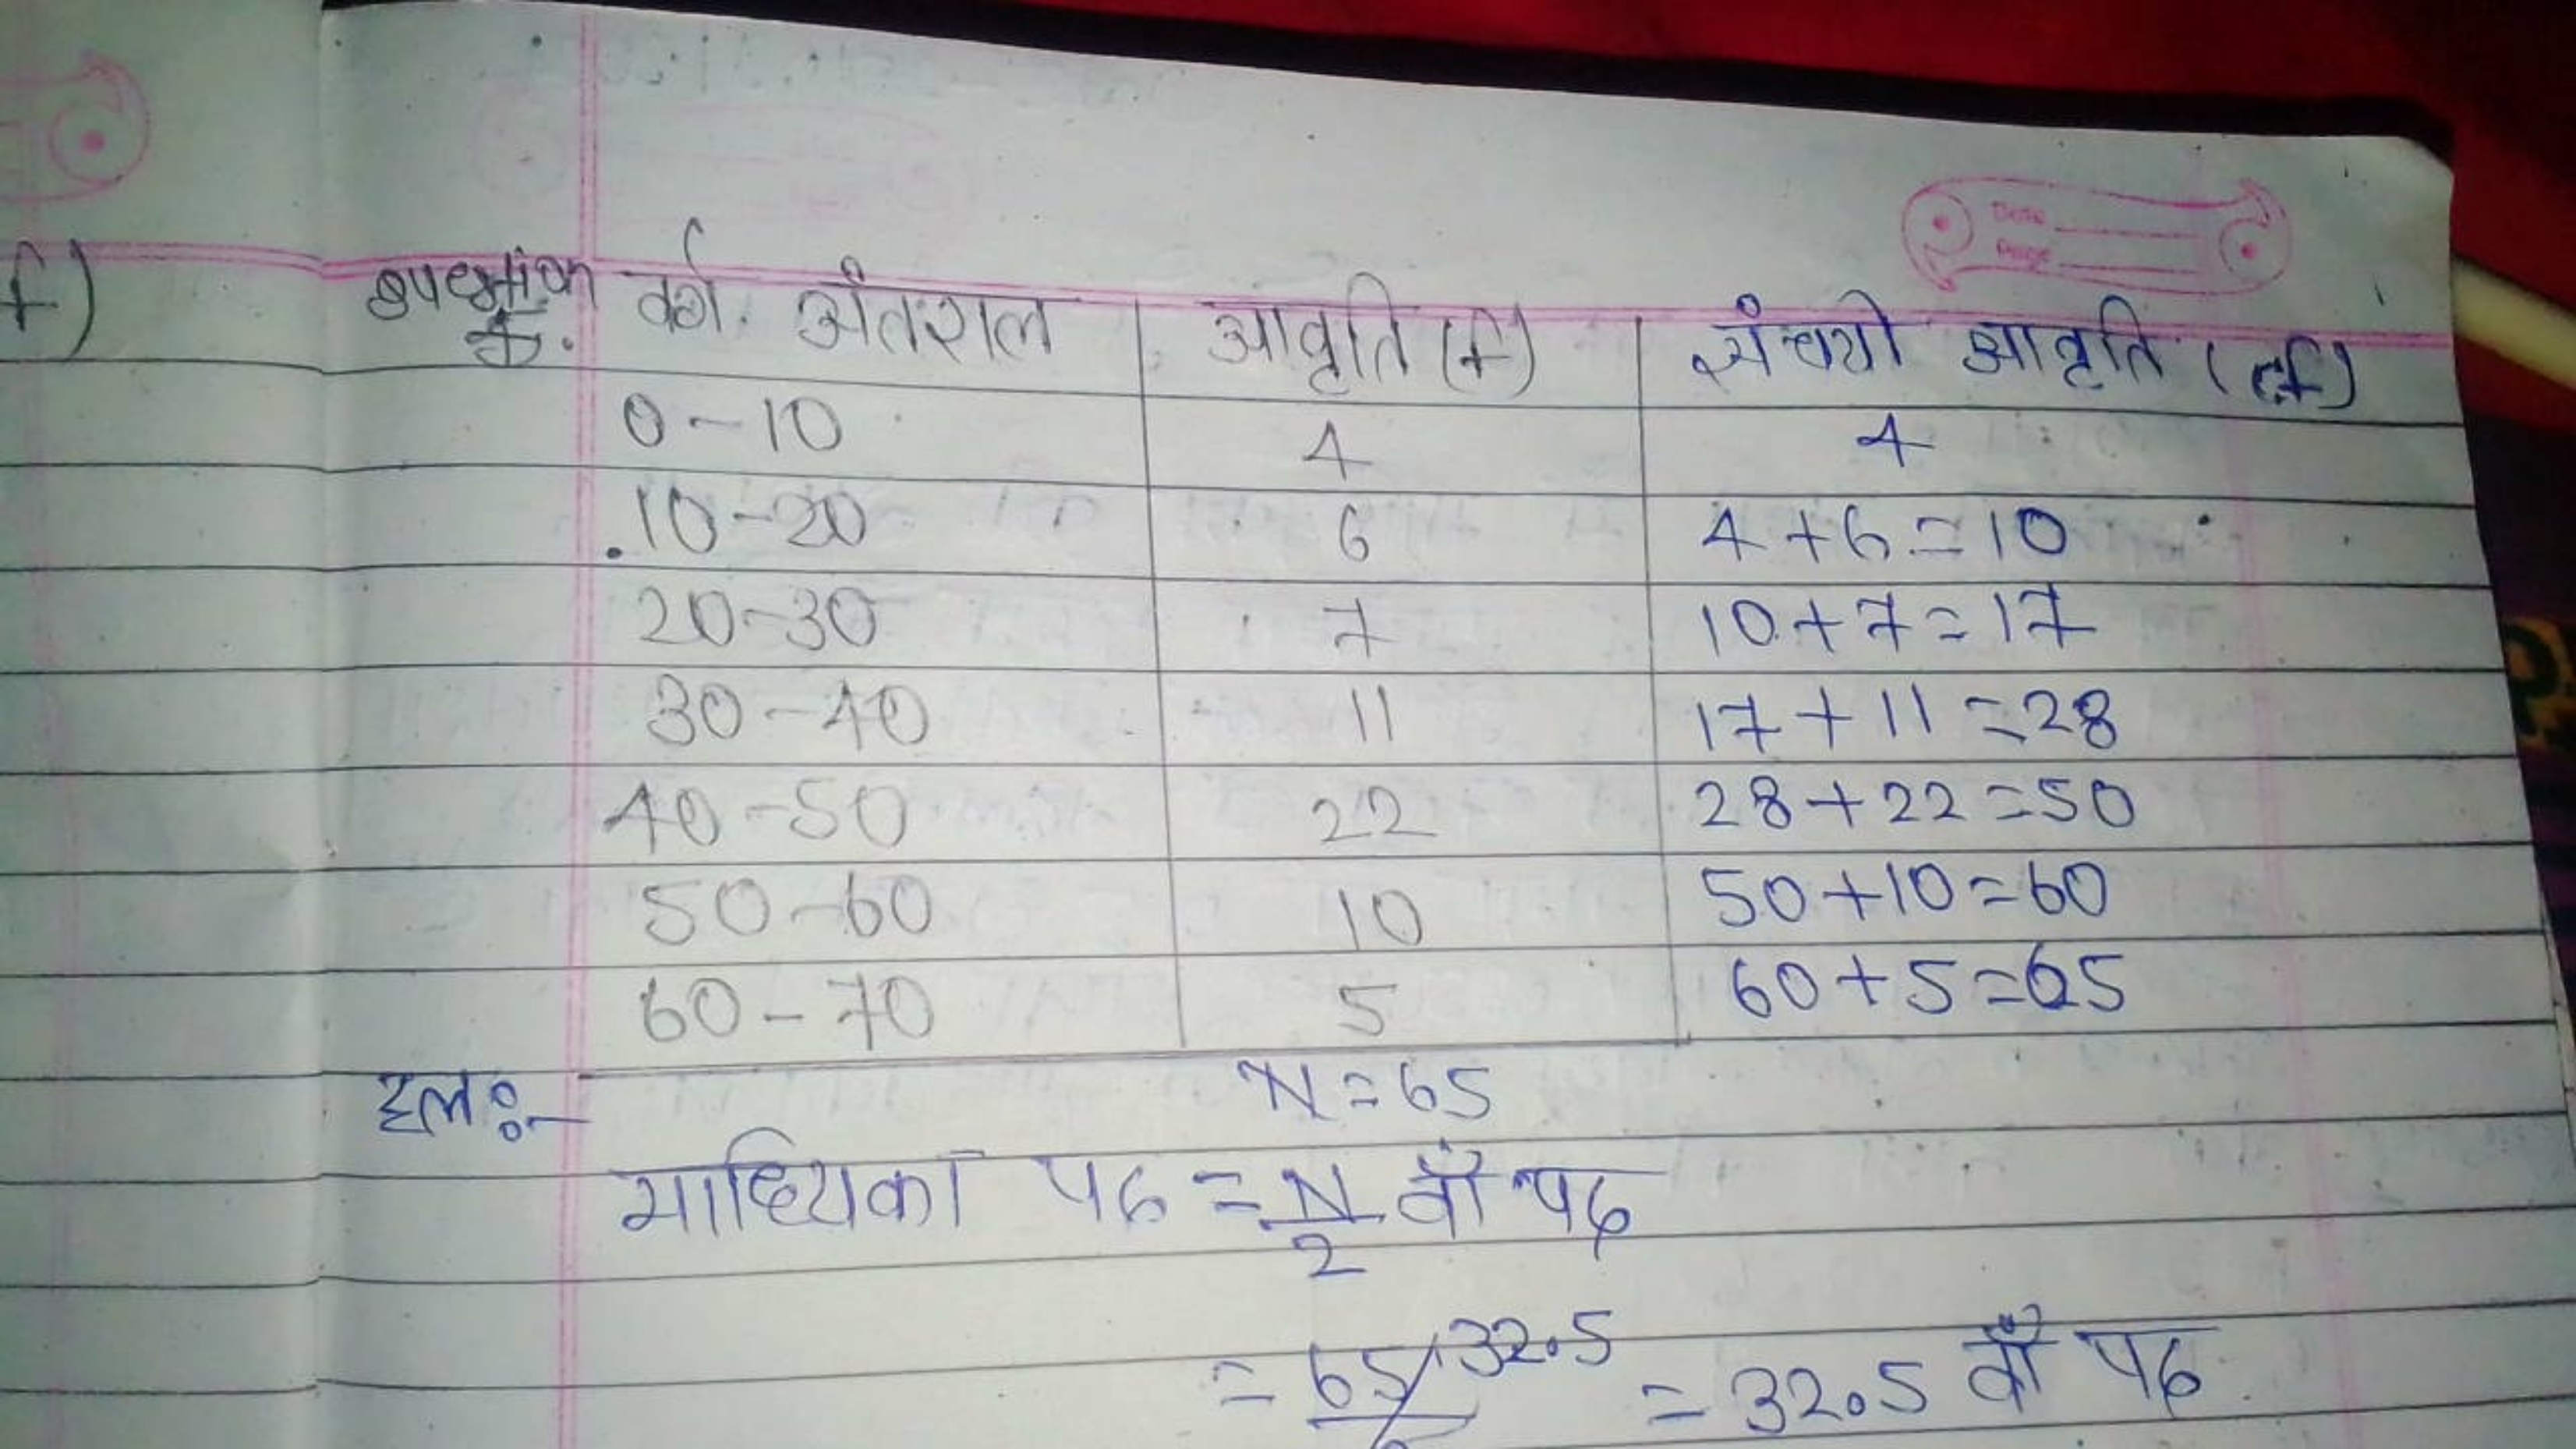 f)
question क्र. वर्ग. अंतराल आवृति (f) संचयी आवृति (cf)
Date
Page
0-10 4 4
10-20 6 4+6=10
20-30 7 10+7=17
30-40 11 17+11=28
40-50 22 28+22=50
50-60 10 50+10=60
60-70 5 60+5=65
हल:- N=65
माध्यिका पद = N/2 वाँ पद
= 65/2 32.5 = 32.5 वाँ पद